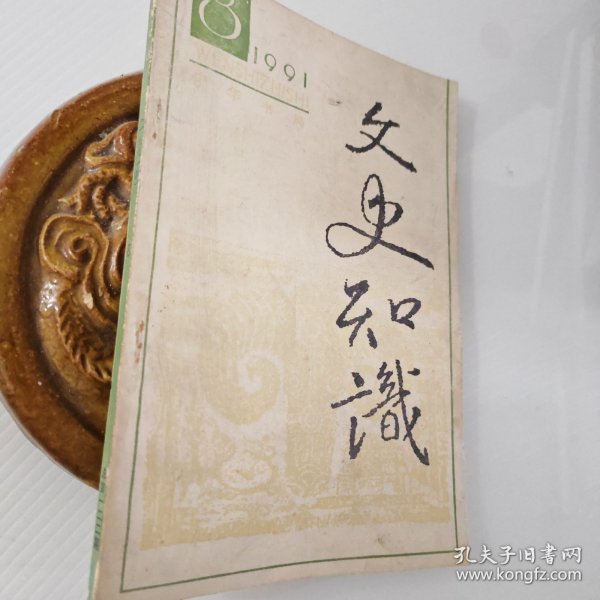 8
1991
WENSHIZHISHI
中华书局
文史知識
孔夫子旧書网
www.kongfz.com